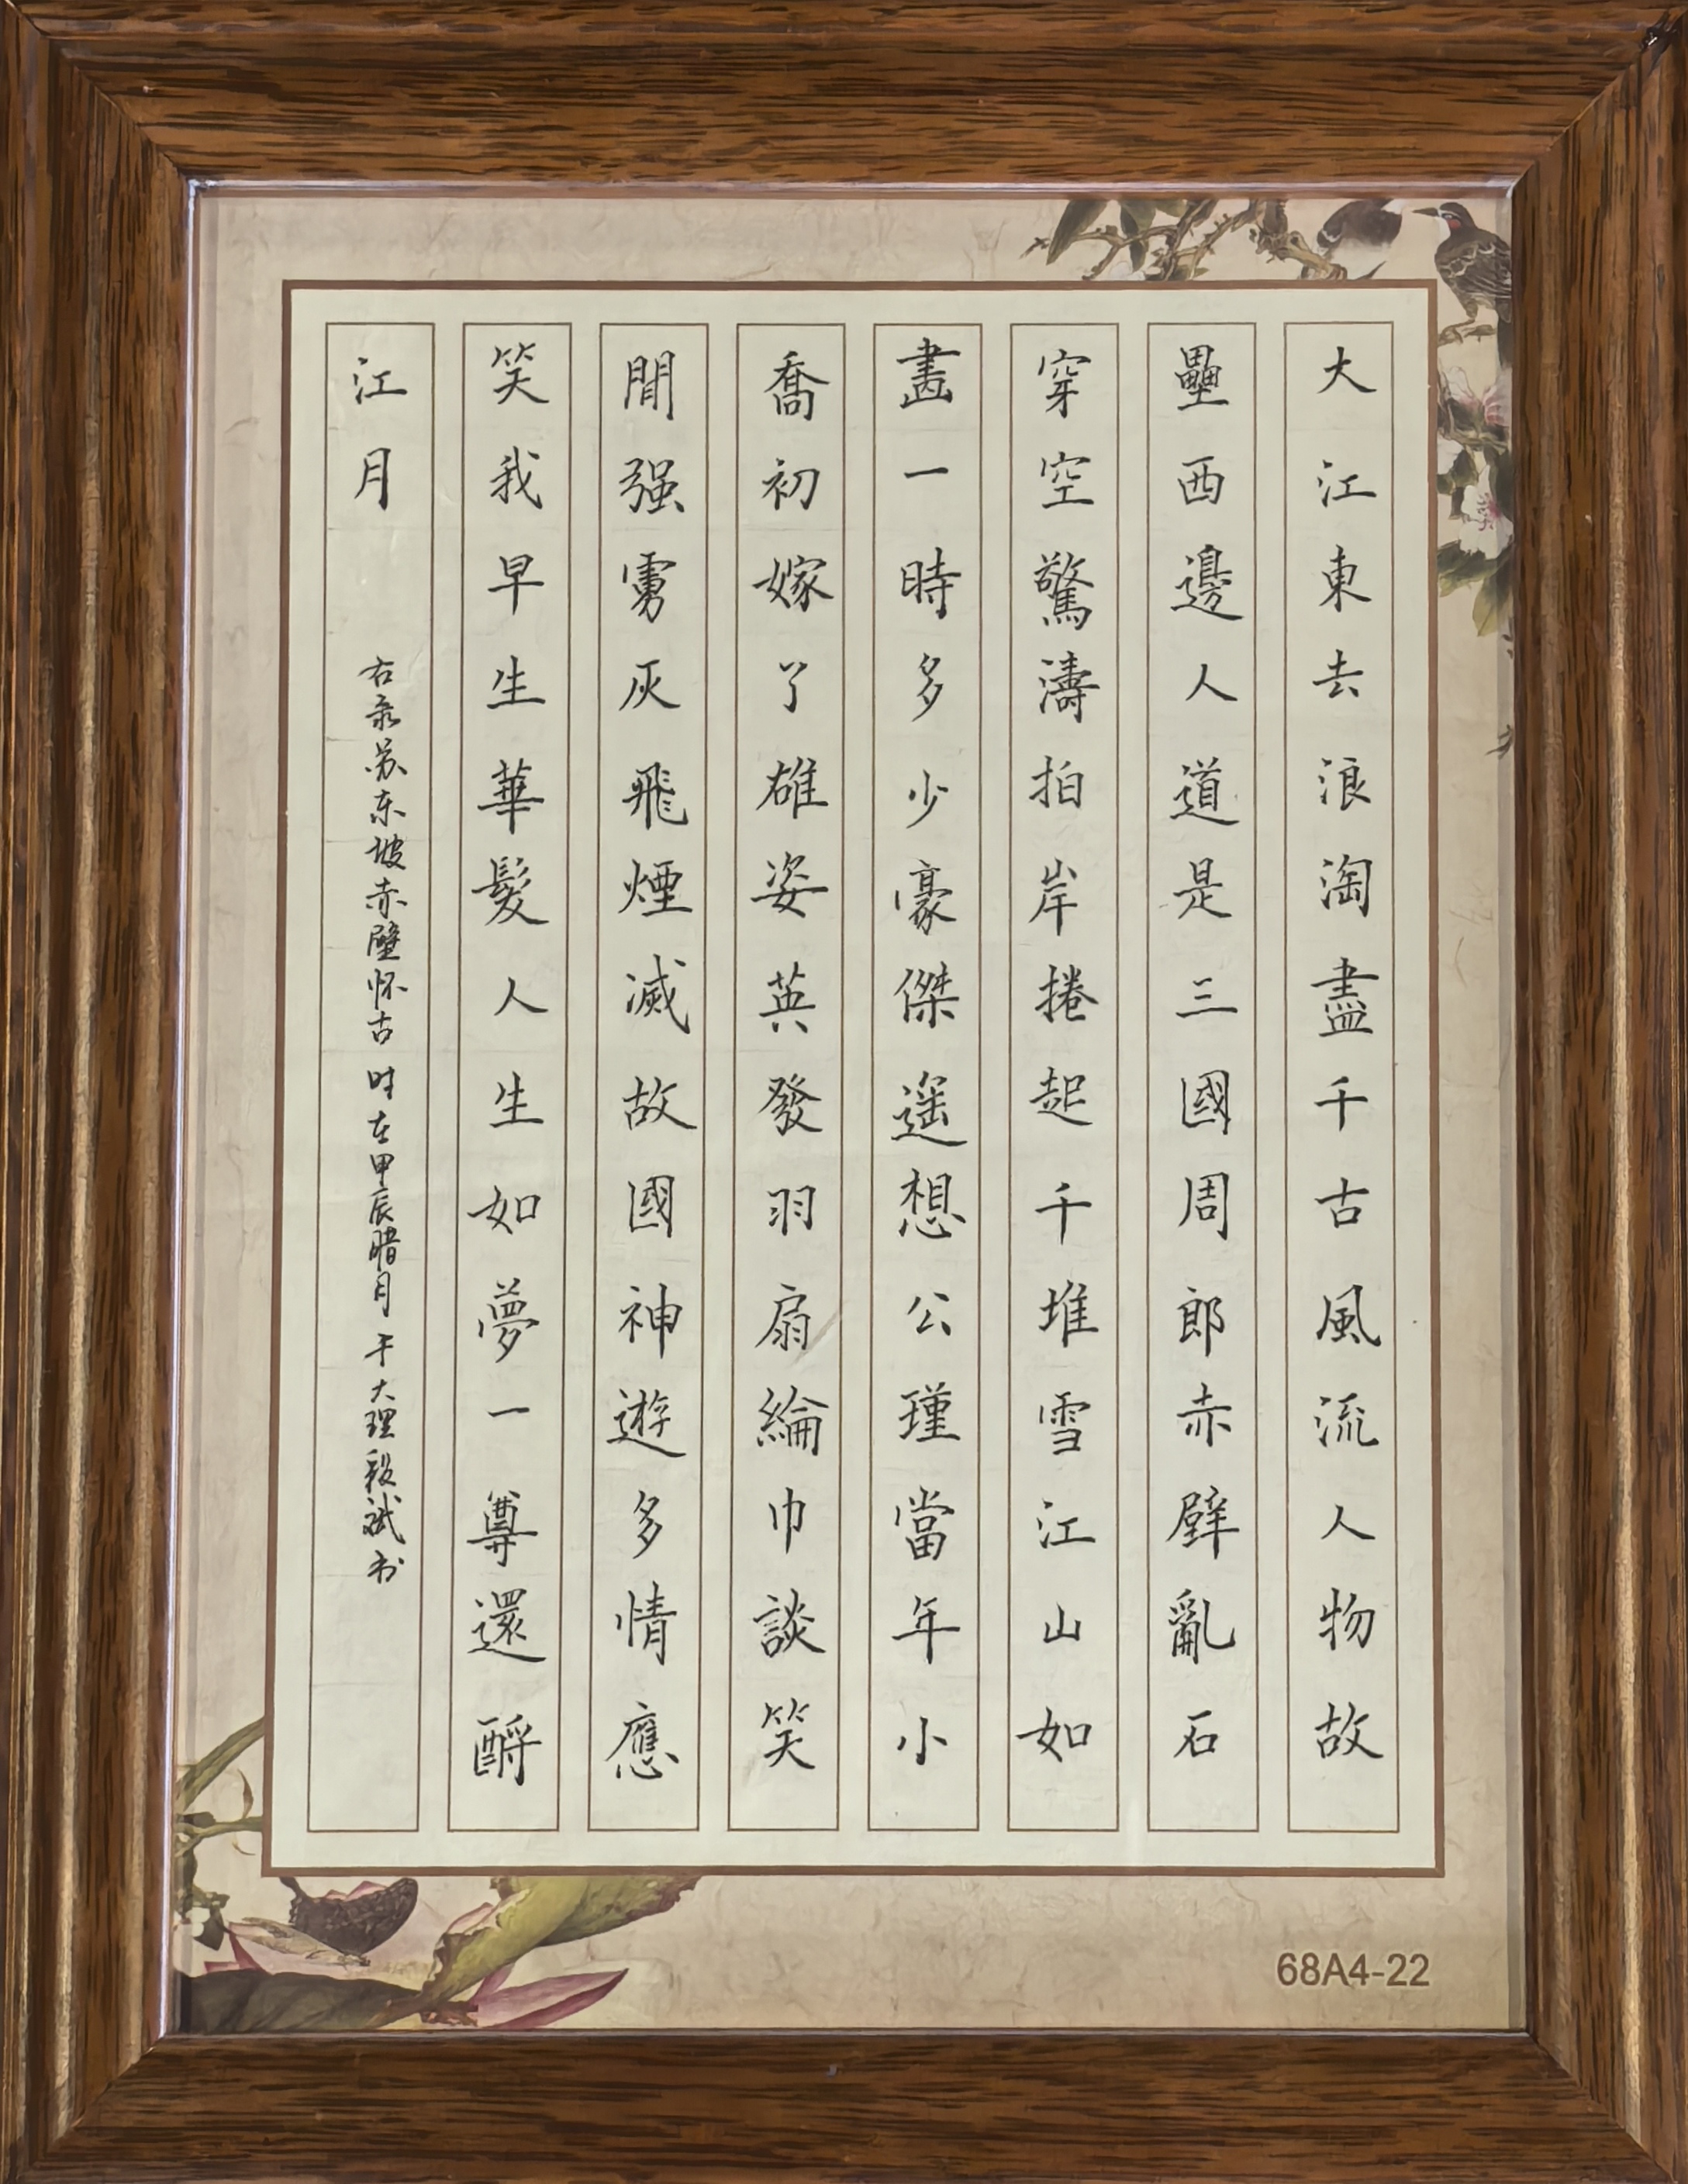 大江東去浪淘盡千古風流人物故
壘西邊人道是三國周郎赤壁亂石
穿空驚濤拍岸捲起千堆雪江山如
畫一時多少豪傑遥想公瑾當年小
喬初嫁了雄姿英發羽扇綸巾談笑
間强虜灰飛煙滅故國神遊多情應
笑我早生華髮人生如夢一尊還酹
江月
右录苏东坡赤壁怀古时在甲辰腊月于大理段斌书
68A4-22